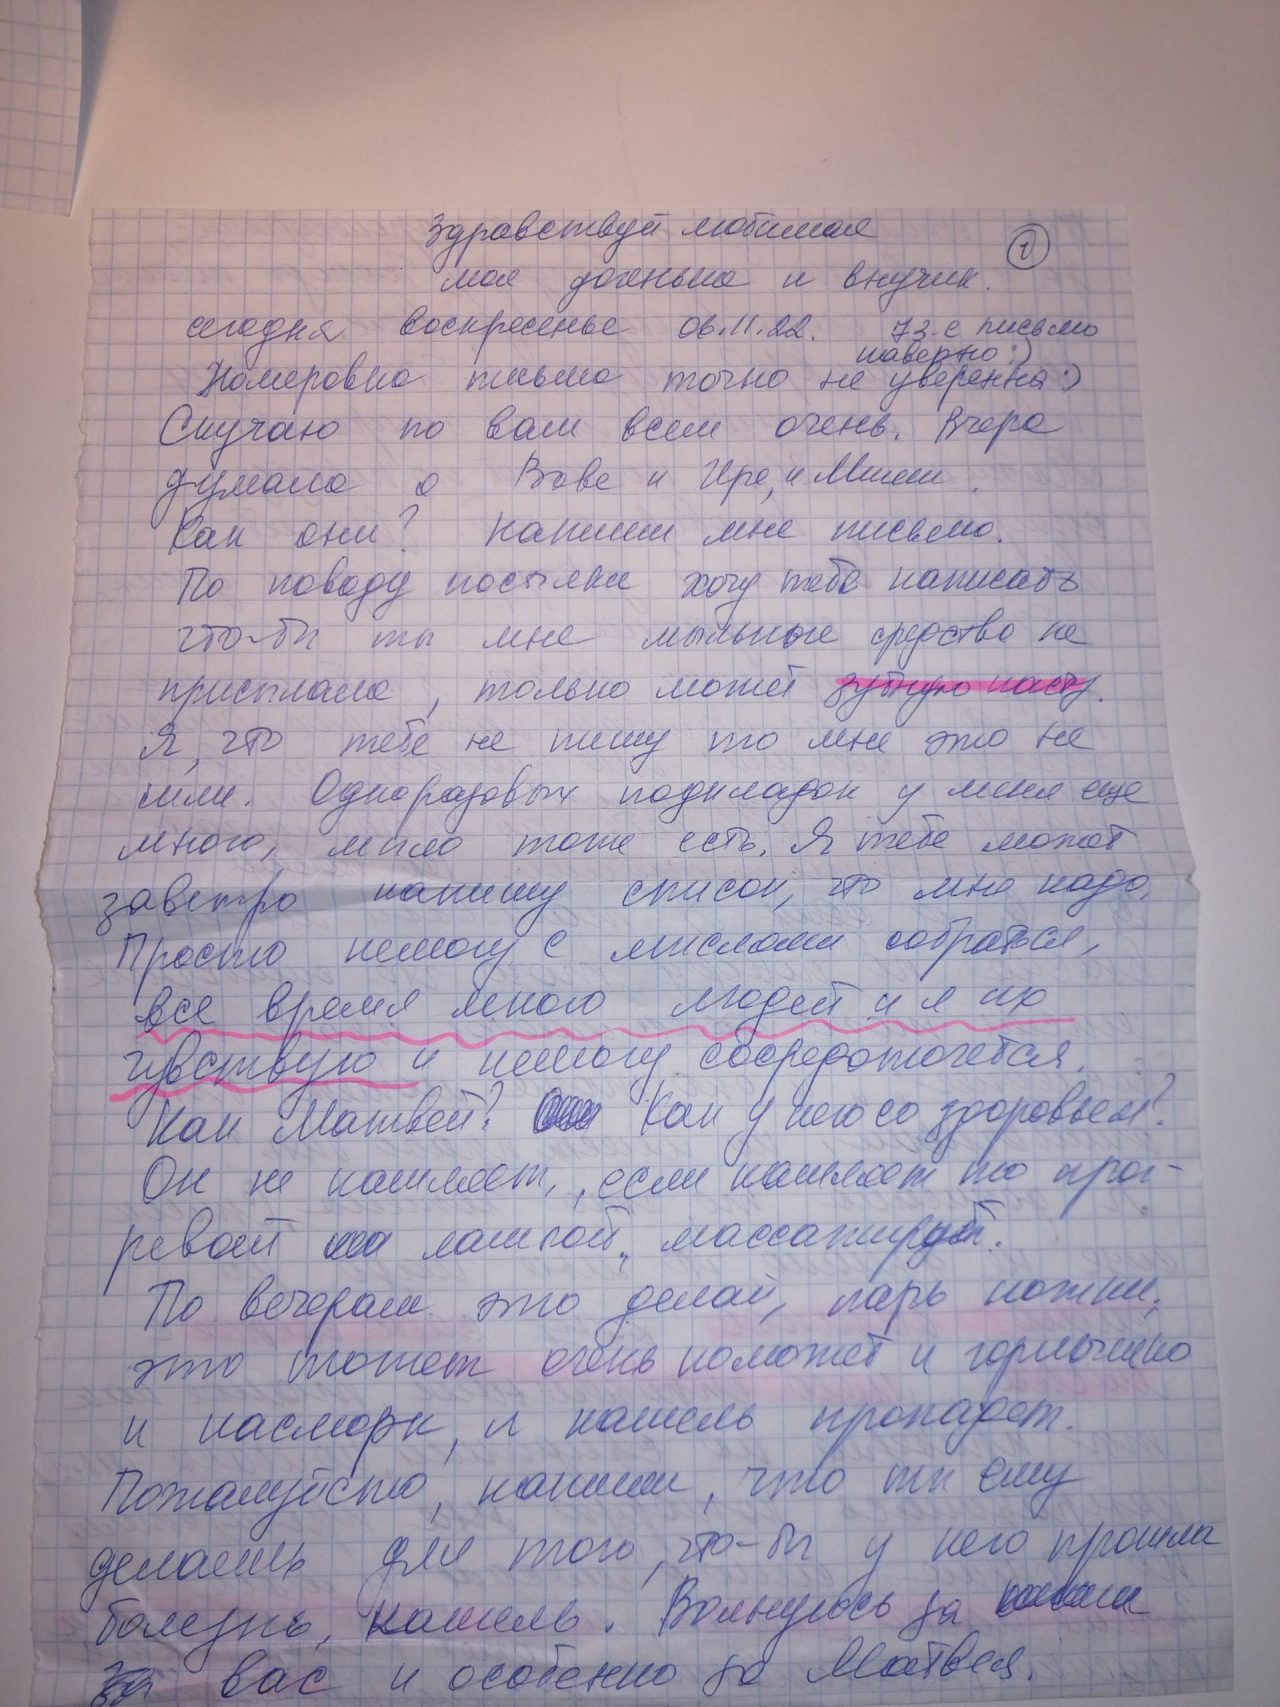 Здравствуй любимая
моя доченька и внучик.
①
сегодня воскресенье 06.11.22. 73-е письмо
наверно :)
Номеровка письма точно не уверенна :)
Скучаю по вам всем очень. Вчера
думала о Вове и Ире, и Миши.
Как они? Напиши мне письмо.
По поводу посылки хочу тебе написать
что-бы ты мне мыльные средство не
присылала, только может зубную пасту.
Я, что тебе не пишу то мне это не
шли. Одноразовых подкладок у меня еще
много, мыло тоже есть. Я тебе может
завтро напишу список, что мне надо.
Просто немогу с мыслями собраться,
все время много людей и я их
чувствую и немогу сосредоточется.
Как Матвей? Как у него со здоровьем?
Он не кашляет, если кашляет то прог-
ревай лампой, массажируй.
По вечерам это делай, парь ножки,
это может очень поможет и горлышко
и насморк, и кашель пропадет.
Пожалуйсто, напиши, что ты ему
делаешь для того, что-бы у него прошла
болезнь, кашель. Волнуюсь за
вас и особенно за Матвея.